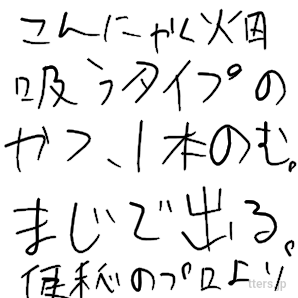 こんにゃく畑
吸うタイプの
かつ、1本のむ。
まじで出る。
便秘のプロより
tters.jp